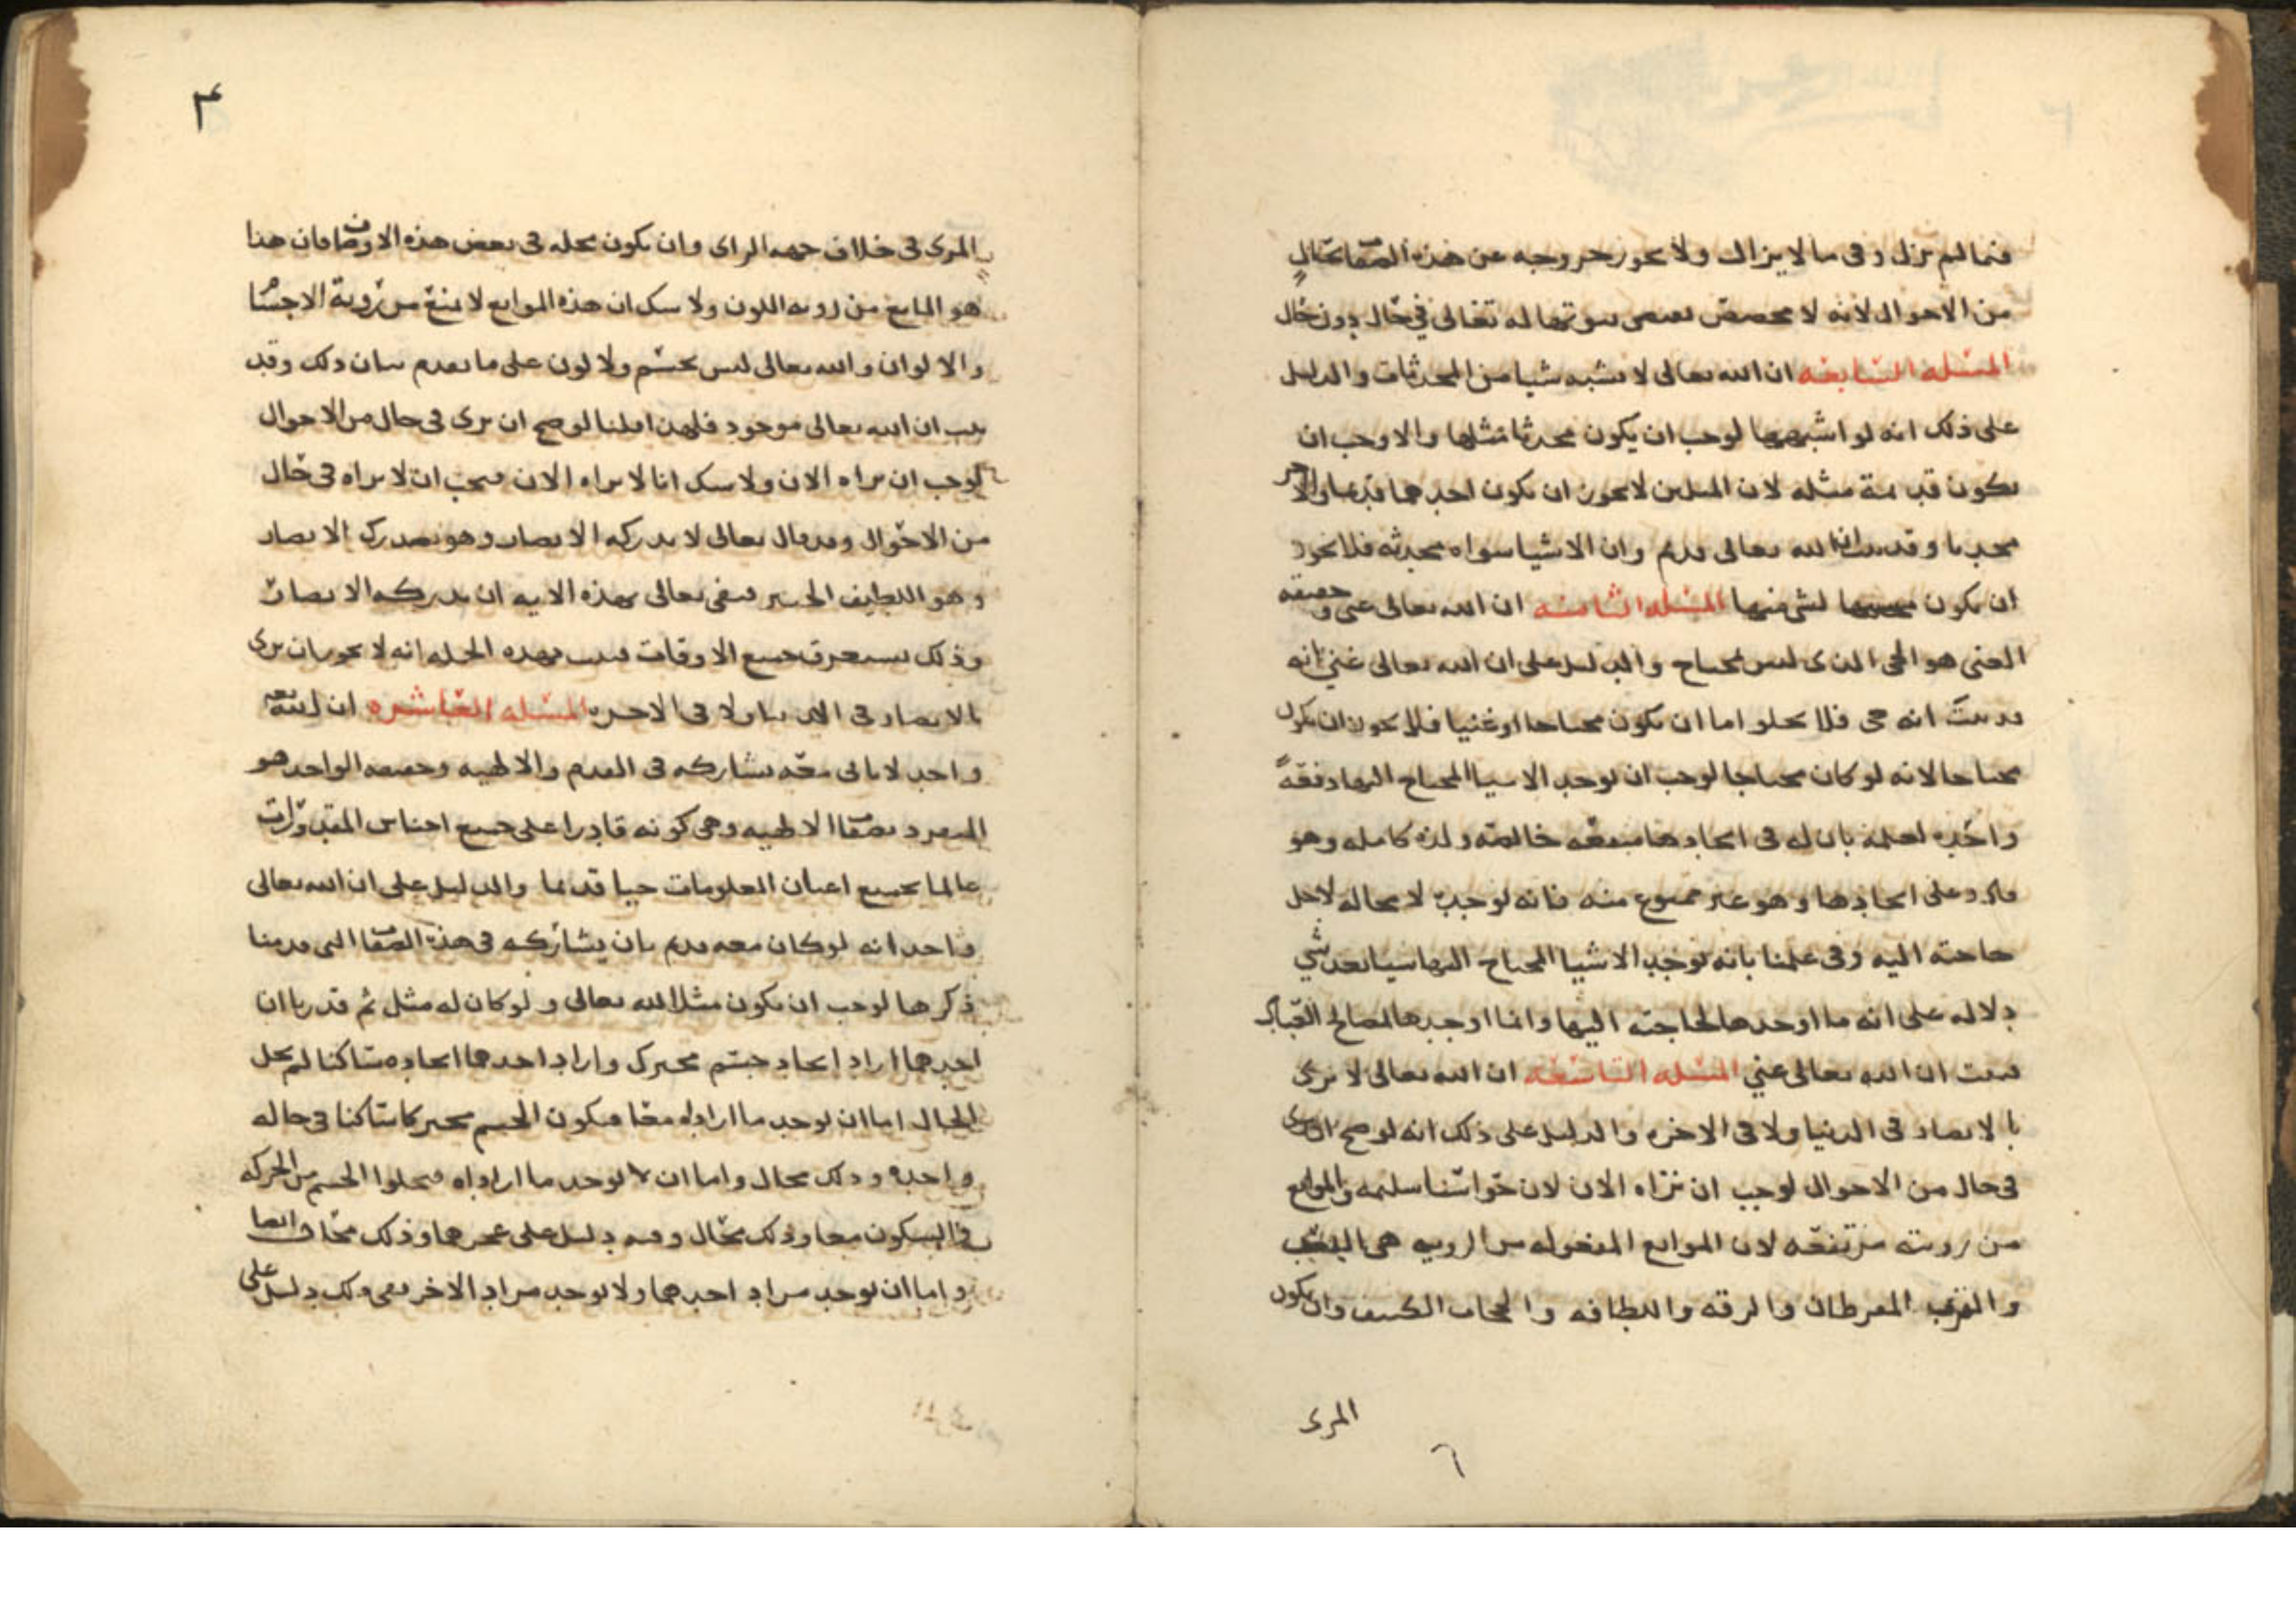 فيما لم يزل وفى ما لا يزال ولا يجوز خروجه عن هذه الصفات بحال
من الاحوال لانه لا مخصص يقتضى ثبوتها له تعالى في حال دون حال
المسئله السابعه ان الله تعالى لا يشبه شيا من المحدثات والدليل
على ذلك انه لو اشبهها لوجب ان يكون محدثا مثلها والا وجب ان
تكون قديمة مثله لان المثلين لا يجوز ان يكون احدهما قديما والاخر
محدثا وقد ثبت ان الله تعالى قديم وان الاشيا سواه محدثه فلا يجوز
ان يكون لشي منها المسئله الثامنه ان الله تعالى غني وحقيقه
الغنى هو الحى الذى ليس بمحتاج والدليل على ان الله تعالى غني انه
قد ثبت انه حى فلا يخلو اما ان يكون محتاجا او غنيا فلا يجوز ان يكون
محتاجا لانه لو كان محتاجا لوجب ان يوجد الاشيا المحتاج اليها دفعةً
واحده لعلمه بان له فى ايجادها منفعه خالصه ولذه كامله وهو
قادر على ايجادها وهو غير ممنوع منه فانه يوجب لا محاله لاجل
حاجته اليه وفى علمنا بانه يوجد الاشيا المحتاج اليها شيا بعد شي
دلاله على انه ما اوجدها لحاجته اليها وانما اوجدها لمصالح العباد
فثبت ان الله تعالى غني المسئله التاسعه ان الله تعالى لا يرى
بالابصار فى الدنيا ولا فى الاخره والدليل على ذلك انه لو صح ان يرى
فى حال من الاحوال لوجب ان نراه الان لان حواسنا سليمه والموانع
من رويته مرتفعه لان الموانع المعقوله من الرويه هى البعد
والقرب المفرطان والرقه واللطافه والحجاب الكثيف وان يكون
المرى
٦
٣
المرى فى خلاف جهه الراى وان يكون محله فى بعض هذه الاوصاف فان هذا
هو المانع من رويه اللون ولا شك ان هذه الموانع لا تمنع من روية الاجسام
والالوان والله تعالى ليس بجسم ولا لون على ما تقدم بيان ذلك وقد
ثبت ان الله تعالى موجود فلهذا قلنا لو صح ان يرى فى حال من الاحوال
لوجب ان نراه الان ولا شك انا لا نراه الان فيجب ان لا نراه فى حال
من الاحوال وقد قال تعالى لا تدركه الابصار وهو يدرك الابصار
وهو اللطيف الخبير فنفى تعالى بهذه الايه ان تدركه الابصار
وذلك يستغرق جميع الاوقات فثبت بهذه الجمله انه لا يجوز ان يرى
بالابصار فى الدنيا ولا فى الاخره المسئله العاشره ان الله تعالى
واحد لا ثانى معه يشاركه فى القدم والالهيه وحقيقه الواحد هو
المتفرد بصفات الالهيه وهى كونه قادرا على جميع اجناس المقدورات
عالما بجميع اعيان المعلومات حيا قديما والدليل على ان الله تعالى
واحد انه لو كان معه قديم ثان يشاركه فى هذه الصفات التى قدمنا
ذكرها لوجب ان يكون مثلا لله تعالى ولو كان له مثل ثم قدرنا ان
احدهما اراد ايجاد جسم متحرك واراد احدهما ايجاده ساكنا لم يخل
الحال اما ان يوجد ما اراداه معا فيكون الجسم متحركا ساكنا فى حاله
واحده وذلك محال واما ان لا يوجد ما اراداه فيخلوا الجسم من الحركه
والسكون معا وذلك محال وفيه دليل على عجزهما وذلك محال ايضا
واما ان يوجد مراد احدهما ولا يوجد مراد الاخر ففى ذلك دليل على